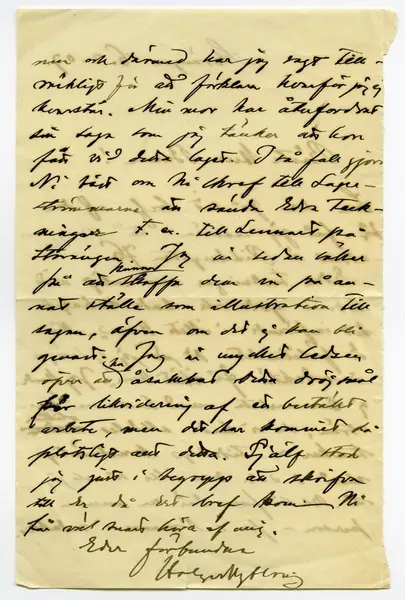 men och därmed har jag sagt till-
räckligt för att förklara hvarför jag ej
kunstår. Min mor har återfordrat
sin saga som jag tänker att hon
fått vid detta laget. I så fall gjor
Ni bäst om Ni skref till Lager-
strömmarne att sända Edra Teck-
ningar t. ex. till Lennart på
Jag är sedan säker
på att kunna skaffa dem in på an-
nat ställe som illustration till
sagan, äfven om det ej kan bli
genast. Jag är mycket ledsen
öfver att ha åsamkat detta dröjsmål
för likvidering af ett beställt
arbete men det har kommit så
plötsligt allt detta. Sjelf stod
jag just i begrepp att skrifva
till Er då det bref kom. Ni
får väl snart höra af mig.
Eder förbundne